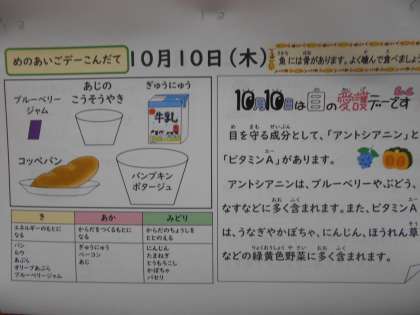 めのあいごデーこんだて
10月10日(木)
魚には骨があります。よく噛んで食べましょう
ブルーベリー
ジャム
あじの
こうそうやき
ぎゅうにゅう
牛乳
コッペパン
パンプキン
ポタージュ
き
あか
みどり
エネルギーのもとに
なる
からだをつくるもとに
なる
からだのちょうしを
ととのえる
パン
ルウ
あぶら
オリーブあぶら
ブルーベリージャム
ぎゅうにゅう
ベーコン
あじ
にんじん
たまねぎ
とうもろこし
かぼちゃ
パセリ
10月10日は目の愛護デーです
目を守る成分として、「アントシアニン」と
「ビタミンA」があります。
アントシアニンは、ブルーベリーやぶどう、
なすなどに多く含まれます。また、ビタミンA
は、うなぎやかぼちゃ、にんじん、ほうれん草
などの緑黄色野菜に多く含まれます。